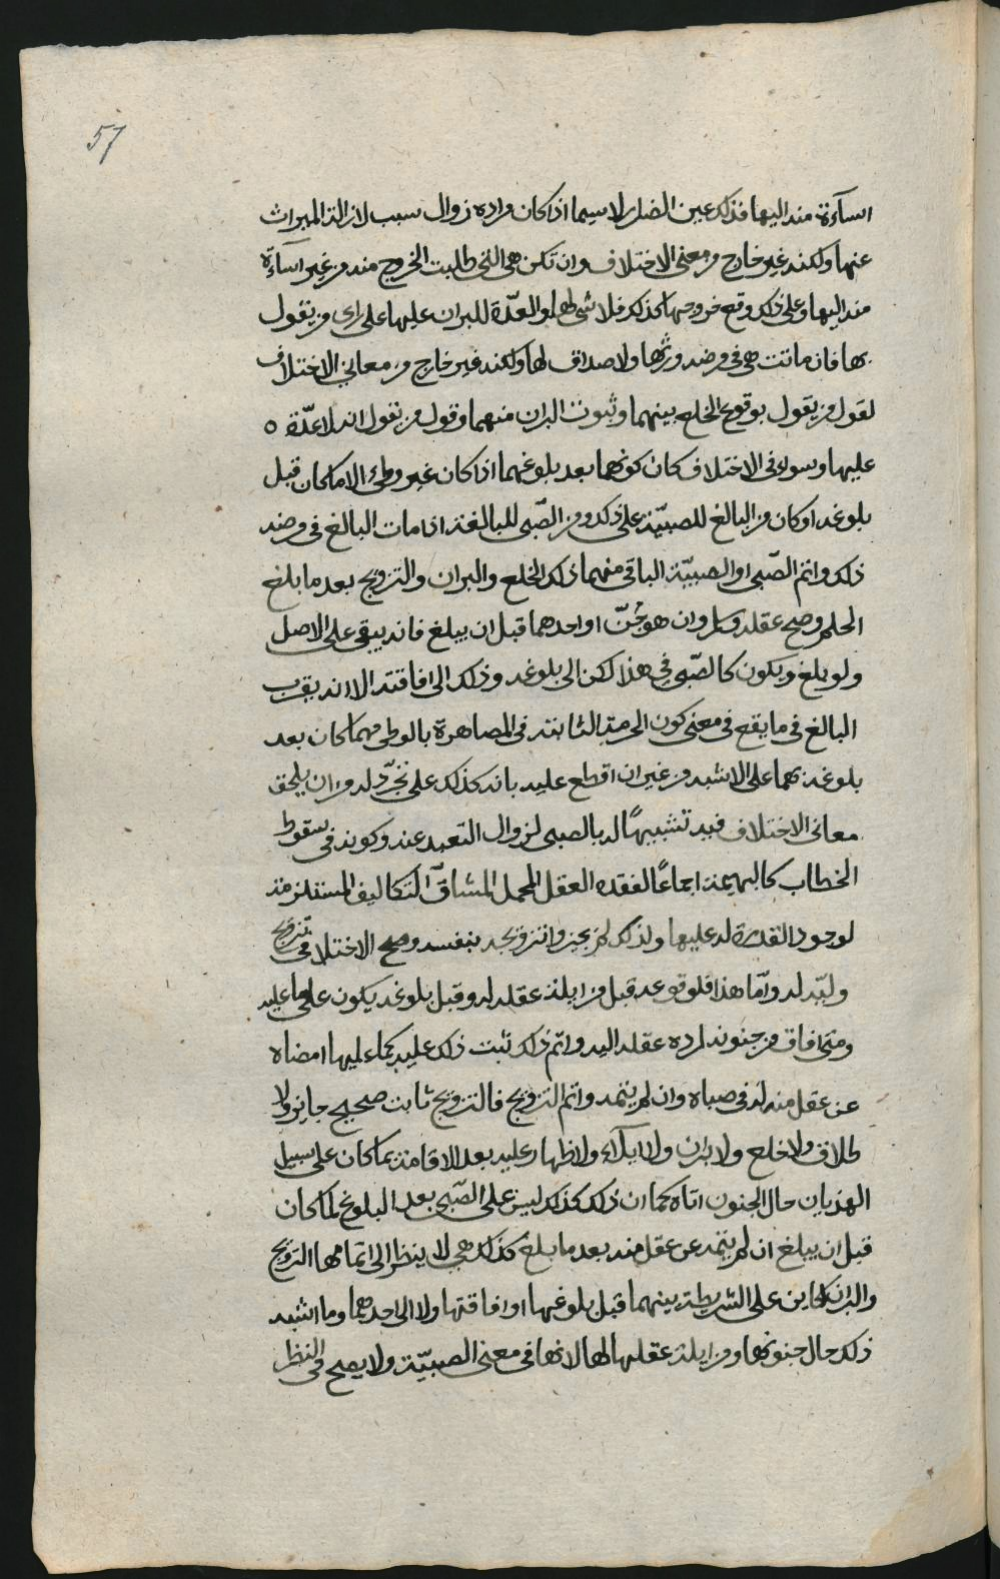 57
اساءة منه اليها فذلك عين الضرار لا سيما اذا كان مراده زوال سبب لازالة الميراث
عنها ولكنه غير خارج من معنى الاختلاف وان تكن هي التي طلبت الخروج منه من غير اساءة
منه اليها وعلى ذلك وقع خروجها كذلك فلا شي لها والعدّة للبران عليها على راي من يقول
بها فان ماتت هي في مرضه ورثها ولا صداق لها ولكنه غير خارج من معاني الاختلاف
لقول من يقول بوقوع الخلع بينهما وثبوت البران منهما وقول من يقول انه لا عدّة ٥
عليها وسواء في الاختلاف كان كونهما بعد بلوغهما اذا كان غير وطئ الا ما كان قبل
بلوغه او كان من البالغ للصبيّة على ذلك ومن الصّبي للبالغة اذا مات البالغ في مرضه
ذلك واتم الصّبي او الصبيّة الباقي منهما ذلك الخلع والبران والتزويج بعد ما بلغ
الحلم وصح عقله وسل وان هو جُنّ او احدهما قبل ان يبلغ فانه يبقى على الاصل
ولو بلغ ويكون كالصّبي في هذا لكن الى بلوغه وذلك الى افاقته الا انه يقرب
البالغ في ما يقع في معنى كون الحرمة الثابتة في المصاهرة بالوطي مهما كان بعد
بلوغه بهما على الاشبه من غير ان اقطع عليه بانه كذلك على تجرّد له من ان يلحق
معاني الاختلاف فيه تشبيهًا له بالصبي لزوال التعبد عنه وكونه في سقوط
الخطاب كالبهيمة اجماعًا لفقده العقل المحمل المشاقّ التكاليف المستلزمة
لوجود القدرة له عليها ولذلك لم يجيزوا تزويجه بنفسه وصح الاختلاف في تزويج
وليّه له وامّا هذا فلوقوعه قبل مزايلة عقله له وقبل بلوغه يكون على ما عليه
ومتى افاق من جنونه لرده عقله اليه واتم ذلك ثبت ذلك عليه كما عليها امضاه
عن عقل منه له في صباه وان لم يتمه واتم التزويج فالتزويج ثابت صحيح جايز ولا
طلاق ولا خلع ولا بران ولا ايلاء ولا ظهار عليه بعد الافاقة بما كان على سبيل
الهذيان حال الجنون اتاه كما ان ذلك كذلك ليس على الصّبي بعد البلوغ لما كان
قبل ان يبلغ ان لم يتمه عن عقل منه بعد ما بلغ كذلك هي لا ينظر الى اتمامها التزويج
والبران الكاين على الشريطة بينهما قبل بلوغها او افاقتها ولا الى احدهما وما اشبه
ذلك حال جنونها ومزايلة عقلها لها لانها في معنى الصبيّة ولا يصح في النظر